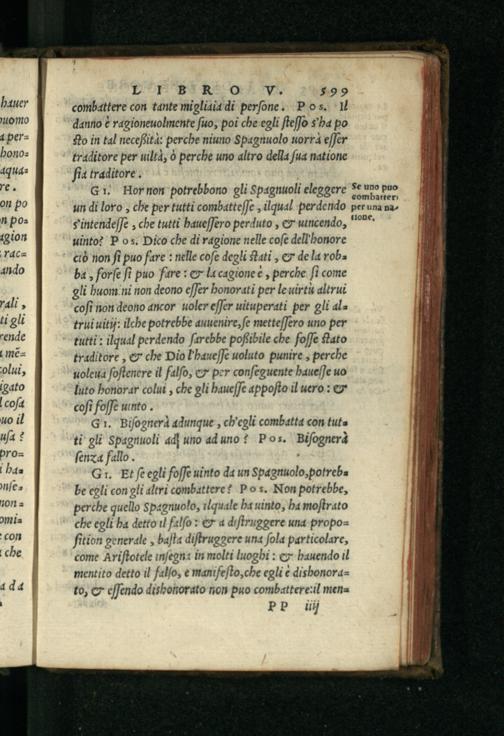 LIBRO V. 599
combattere con tante migliaia di persone. POS. Il
danno è ragioneuolmente suo, poi che egli stesso s'ha po
sto in tal necessità: perche niuno Spagnuolo uorrà esser
traditore per uiltà, ò perche uno altro della sua natione
sia traditore.
GI. Hor non potrebbono gli Spagnuoli eleggere
un di loro, che per tutti combattesse, ilqual perdendo
s'intendesse, che tutti hauessero perduto, & uincendo,
uinto? POS. Dico che di ragione nelle cose dell'honore
ciò non si puo fare: nelle cose degli stati, & de la rob=
ba, forse si puo fare: & la cagione è, perche si come
gli huom ni non deono esser honorati per le uirtù altrui
cosi non deono ancor uoler esser uituperati per gli al=
trui uitij: ilche potrebbe auuenire, se mettessero uno per
tutti: ilqual perdendo sarebbe possibile che fosse stato
traditore, & che Dio l'hauesse uoluto punire, perche
uoleua sostenere il falso, & per conseguente hauesse uo
luto honorar colui, che gli hauesse apposto il uero: &
cosi fosse uinto.
GI. Bisognerà adunque, ch'egli combatta con tut=
ti gli Spagnuoli ad uno ad uno? POS. Bisognerà
senza fallo.
GI. Et se egli fosse uinto da un Spagnuolo, potreb=
be egli con gli altri combattere? POS. Non potrebbe,
perche quello Spagnuolo, ilquale ha uinto, ha mostrato
che egli ha detto il falso: & a distruggere una propo=
sition generale, basta distruggere una sola particolare,
come Aristotele insegna in molti luoghi: & hauendo il
mentito detto il falso, e manifesto, che egli è dishonora=
to, & essendo dishonorato non puo combattere: il men=
PP iiij
Se uno puo
combatter
per una na=
tione.
hauer
huomo
a per=
hono=
aqua=
re.
on po
on po=
agion
rac=
ando
rali,
ti gli
rende
a mē=
colui,
igato
l cosa
uo il
usa?
pro=
i ha=
onse=
non=
omi=
e con
a che
a da